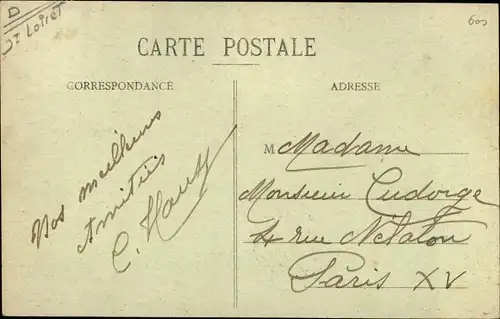 D
Dt Loiret
600
CARTE POSTALE
CORRESPONDANCE
ADRESSE
Nos meilleures
Amitiés
C. Hauty
M Madame
Monsieur Cudorge
4 rue Nelaton
Paris XV